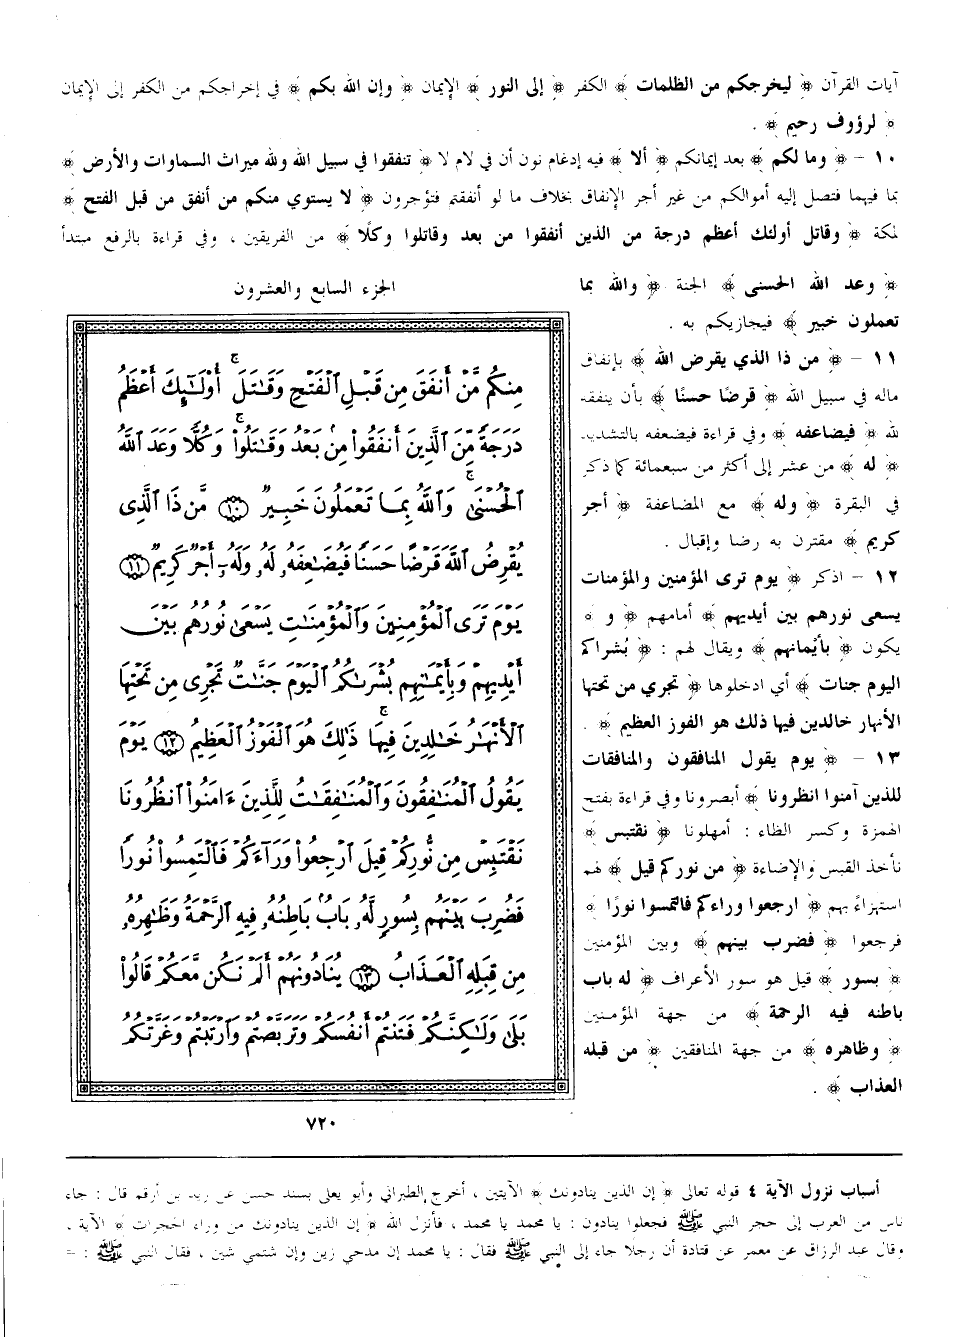 آيات القرآن ﴿ ليخرجكم من الظلمات ﴾ الكفر ﴿ إلى النور ﴾ الإيمان ﴿ وإن الله بكم ﴾ في إخراجكم من الكفر إلى الإيمان
﴿ لرؤوف رحيم ﴾ .
١٠ - ﴿ وما لكم ﴾ بعد إيمانكم ﴿ ألا ﴾ فيه إدغام نون أن في لام لا ﴿ تنفقوا في سبيل الله ولله ميراث السماوات والأرض ﴾
بما فيهما فتصل إليه أموالكم من غير أجر الإنفاق بخلاف ما لو أنفقتم فتؤجرون ﴿ لا يستوي منكم من أنفق من قبل الفتح ﴾
لمكة ﴿ وقاتل أولئك أعظم درجة من الذين أنفقوا من بعد وقاتلوا وكلًا ﴾ من الفريقين ، وفي قراءة بالرفع مبتدأ
﴿ وعد الله الحسنى ﴾ الجنة ﴿ والله بما
تعملون خبير ﴾ فيجازيكم به .
١١ - ﴿ من ذا الذي يقرض الله ﴾ بإنفاق
ماله في سبيل الله ﴿ قرضًا حسنًا ﴾ بأن ينفقه
لله ﴿ فيضاعفه ﴾ وفي قراءة فيضعفه بالتشديد
﴿ له ﴾ من عشر إلى أكثر من سبعمائة كما ذكر
في البقرة ﴿ وله ﴾ مع المضاعفة ﴿ أجر
كريم ﴾ مقترن به رضا وإقبال .
١٢ - اذكر ﴿ يوم ترى المؤمنين والمؤمنات
يسعى نورهم بين أيديهم ﴾ أمامهم ﴿ و ﴾
يكون ﴿ بأيْمانهم ﴾ ويقال لهم : ﴿ بُشراكم
اليوم جنات ﴾ أي ادخلوها ﴿ تجري من تحتها
الأنهار خالدين فيها ذلك هو الفوز العظيم ﴾ .
١٣ - ﴿ يوم يقول المنافقون والمنافقات
للذين آمنوا انظرونا ﴾ أبصرونا وفي قراءة بفتح
الهمزة وكسر الظاء : أمهلونا ﴿ نقتبس ﴾
نأخذ القبس والإضاءة ﴿ من نوركم قيل ﴾ لهم
استهزاءً بهم ﴿ ارجعوا وراءكم فالتمسوا نورًا ﴾
فرجعوا ﴿ فضرب بينهم ﴾ وبين المؤمنين
﴿ بسور ﴾ قيل هو سور الأعراف ﴿ له باب
باطنه فيه الرحمة ﴾ من جهة المؤمنين
﴿ وظاهره ﴾ من جهة المنافقين ﴿ من قبله
العذاب ﴾ .
الجزء السابع والعشرون
مِنكُم مَّنْ أَنفَقَ مِن قَبْلِ ٱلْفَتْحِ وَقَٰتَلَ ۚ أُو۟لَٰٓئِكَ أَعْظَمُ
دَرَجَةً مِّنَ ٱلَّذِينَ أَنفَقُوا۟ مِنۢ بَعْدُ وَقَٰتَلُوا۟ ۚ وَكُلًّا وَعَدَ ٱللَّهُ
ٱلْحُسْنَىٰ ۚ وَٱللَّهُ بِمَا تَعْمَلُونَ خَبِيرٌ ﴿١٠﴾ مَّن ذَا ٱلَّذِى
يُقْرِضُ ٱللَّهَ قَرْضًا حَسَنًا فَيُضَٰعِفَهُۥ لَهُۥ وَلَهُۥٓ أَجْرٌ كَرِيمٌ ﴿١١﴾
يَوْمَ تَرَى ٱلْمُؤْمِنِينَ وَٱلْمُؤْمِنَٰتِ يَسْعَىٰ نُورُهُم بَيْنَ
أَيْدِيهِمْ وَبِأَيْمَٰنِهِم بُشْرَىٰكُمُ ٱلْيَوْمَ جَنَّٰتٌ تَجْرِى مِن تَحْتِهَا
ٱلْأَنْهَٰرُ خَٰلِدِينَ فِيهَا ۚ ذَٰلِكَ هُوَ ٱلْفَوْزُ ٱلْعَظِيمُ ﴿١٢﴾ يَوْمَ
يَقُولُ ٱلْمُنَٰفِقُونَ وَٱلْمُنَٰفِقَٰتُ لِلَّذِينَ ءَامَنُوا۟ ٱنظُرُونَا
نَقْتَبِسْ مِن نُّورِكُمْ قِيلَ ٱرْجِعُوا۟ وَرَآءَكُمْ فَٱلْتَمِسُوا۟ نُورًا
فَضُرِبَ بَيْنَهُم بِسُورٍ لَّهُۥ بَابٌۢ بَاطِنُهُۥ فِيهِ ٱلرَّحْمَةُ وَظَٰهِرُهُۥ
مِن قِبَلِهِ ٱلْعَذَابُ ﴿١٣﴾ يُنَادُونَهُمْ أَلَمْ نَكُن مَّعَكُمْ قَالُوا۟
بَلَىٰ وَلَٰكِنَّكُمْ فَتَنتُمْ أَنفُسَكُمْ وَتَرَبَّصْتُمْ وَٱرْتَبْتُمْ وَغَرَّتْكُمُ
٧٢٠
أسباب نزول الآية ٤ قوله تعالى ﴿ إن الذين ينادونك ﴾ الآيتين ، أخرج الطبراني وأبو يعلى بسند حسن عن زيد بن أرقم قال : جاء
ناس من العرب إلى حجر النبي ﷺ فجعلوا ينادون : يا محمد يا محمد ، فأنزل الله ﴿ إن الذين ينادونك من وراء الحجرات ﴾ الآية ،
وقال عبد الرزاق عن معمر عن قتادة أن رجلًا جاء إلى النبي ﷺ فقال : يا محمد إن مدحي زين وإن شتمي شين ، فقال النبي ﷺ : =